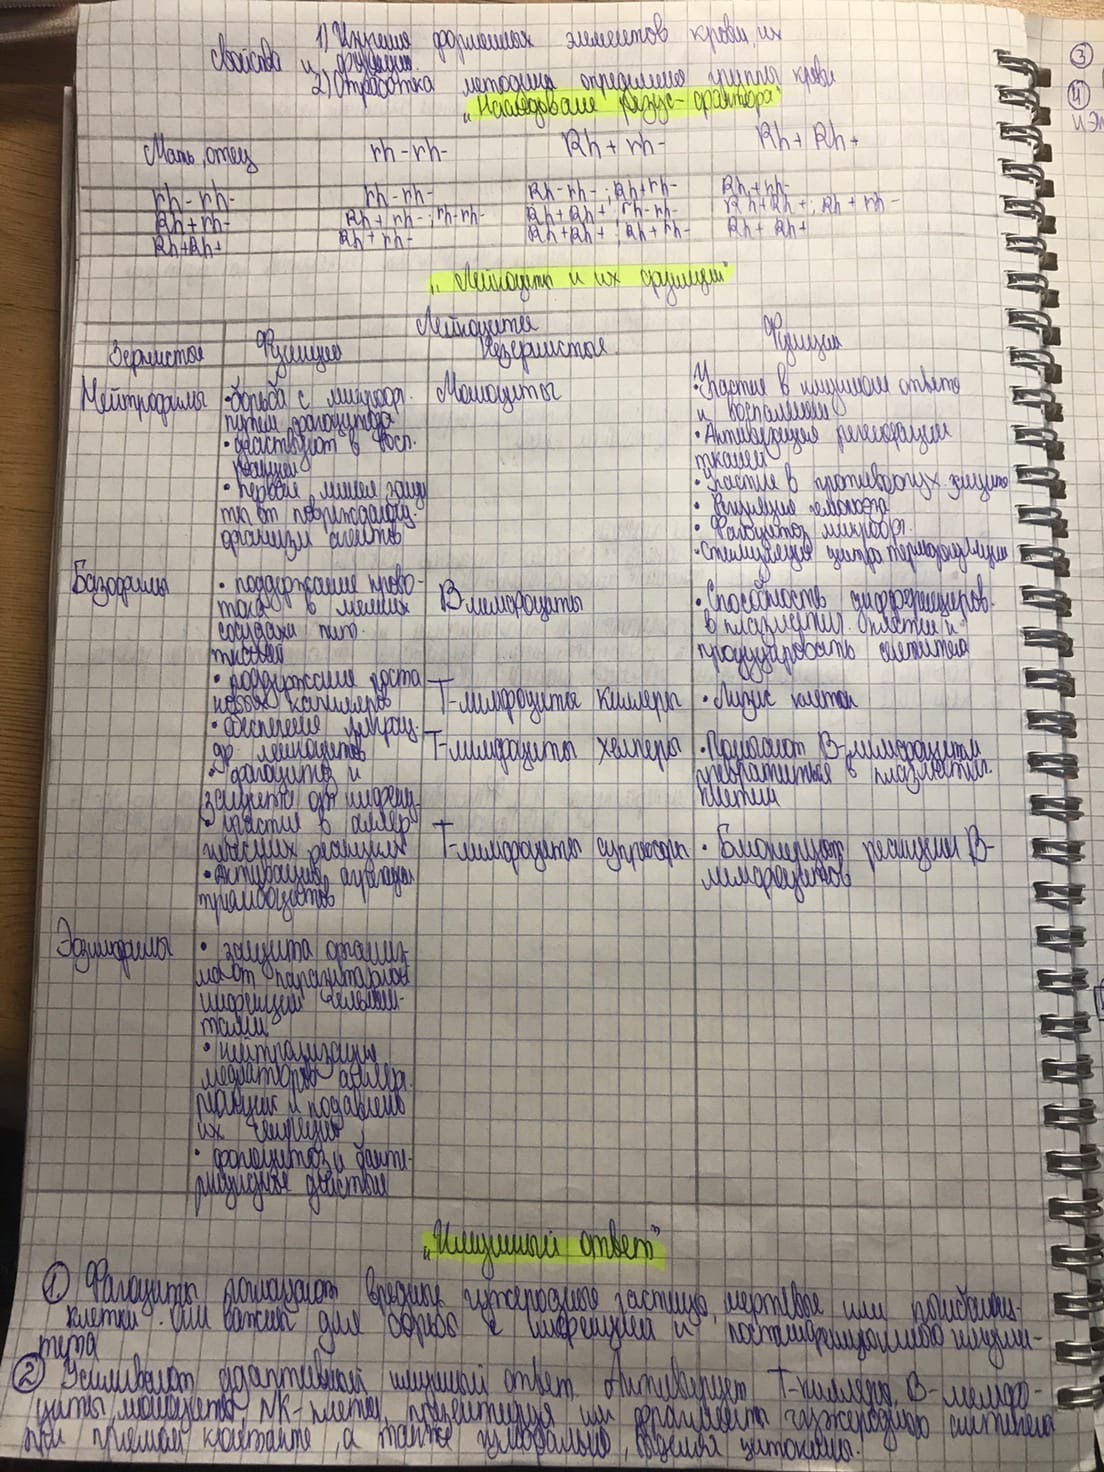 1) Изучение форменных элементов крови, их
свойства и функции.
2) Отработка методики определения группы крови
"Наследование резус-фактора"
Мать, отец rh-rh- Rh+rh- Rh+Rh+
rh-rh- rh-rh- Rh-rh-; Rh+rh- Rh+rh-
Rh+rh- Rh+rh-; rh-rh- Rh+Rh+; rh-rh- Rh+Rh+; Rh+rh-
Rh+Rh+ Rh+rh- Rh+Rh+; Rh+rh- Rh+Rh+
"Лейкоциты и их функции"
Лейкоциты
Зернистые Функции Незернистые Функции
Нейтрофилы
• борьба с микроорг.
путем фагоцитоза
• участвуют в восп.
реакции
• первая линия защи
ты от повреждающ.
организм агентов
Моноциты
• Участие в иммунном ответе
и воспалении
• Активизация регенерации
тканей
• Участие в противоопух. защите
• Регуляция гемопоэза
• Фагоцитоз микроорг.
• Стимуляция центра терморегуляции
Базофилы
• поддержание крово-
тока в мелких
сосудах пит.
тканей
• поддержание роста
новых капилляров
• обеспечение миграц.
др. лейкоцитов
• фагоцитоз и
защита от инфекц.
• участие в аллер
гических реакциях
• Активация агрегации
тромбоцитов
В-лимфоциты
• Способность дифференциров.
в плазматич. клетки и
продуцировать антитела
Т-лимфоциты киллеры • Лизис клеток
Т-лимфоциты хелперы • Помогают В-лимфоцитам
превратиться в плазматич.
клетки
Т-лимфоциты супрессоры • Блокируют реакции В-
лимфоцитов
Эозинофилы
• защита организ-
ма от паразитарной
инфекции гельмин-
тами
• нейтрализация
медиаторов аллерг.
реакции и подавление
их секреции
• фагоцитоз и бакте-
рицидное действие
"Иммунный ответ"
① Фагоциты поглощают вредные чужеродные частицы, мертвые или погибающ-
клетки. Они важны для борьбы с инфекцией и постинфекционного иммуни-
тета
② Усиливают адаптивный иммунный ответ. Активируют Т-киллеры, В-лимфо-
циты, моноциты, NK-клетки, презентируя им фрагменты чужеродного антигена
при прямом контакте, а также гуморально, выделяя цитокины.
③
④